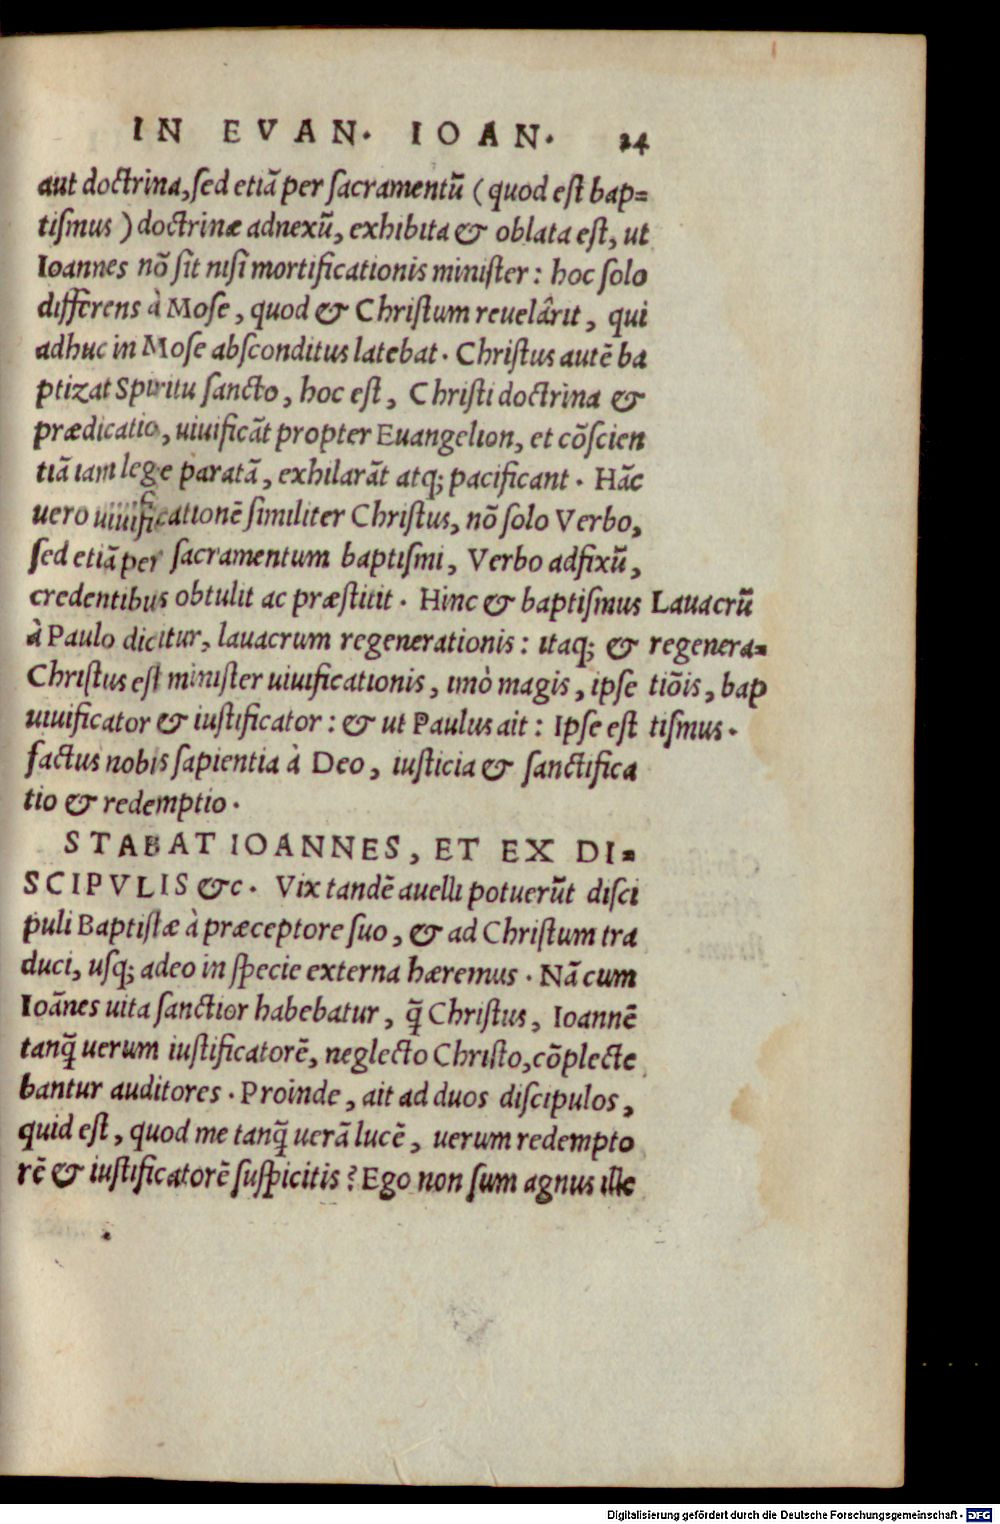 IN EVAN. IOAN. 24
aut doctrina, sed etiã per sacramentũ (quod est bap=
tismus) doctrinæ adnexũ, exhibita & oblata est, ut
Ioannes nõ sit nisi mortificationis minister: hoc solo
differens à Mose, quod & Christum reuelârit, qui
adhuc in Mose absconditus latebat. Christus autẽ ba
ptizat Spiritu sancto, hoc est, Christi doctrina &
prædicatio, uiuificãt propter Euangelion, et cõscien
tiã iam lege paratã, exhilarãt atq; pacificant. Hãc
uero uiuificationẽ similiter Christus, nõ solo Verbo,
sed etiã per sacramentum baptismi, Verbo adfixũ,
credentibus obtulit ac præstitit. Hinc & baptismus
à Paulo dicitur, lauacrum regenerationis: itaq; &
Christus est minister uiuificationis, imò magis, ipse
uiuificator & iustificator: & ut Paulus ait: Ipse est
factus nobis sapientia à Deo, iusticia & sanctifica
tio & redemptio.
Lauacrũ
regenera=
tiõis, bap
tismus.
STABAT IOANNES, ET EX DI=
SCIPVLIS &c. Vix tandẽ auelli potuerũt disci
puli Baptistæ à præceptore suo, & ad Christum tra
duci, usq; adeo in specie externa hæremus. Nã cum
Ioãnes uita sanctior habebatur, q̃ Christus, Ioannẽ
tanq̃ uerum iustificatorẽ, neglecto Christo, cõplecte
bantur auditores. Proinde, ait ad duos discipulos,
quid est, quod me tanq̃ uerã lucẽ, uerum redempto
rẽ & iustificatorẽ suspicitis? Ego non sum agnus ille
Digitalisierung gefördert durch die Deutsche Forschungsgemeinschaft - DFG